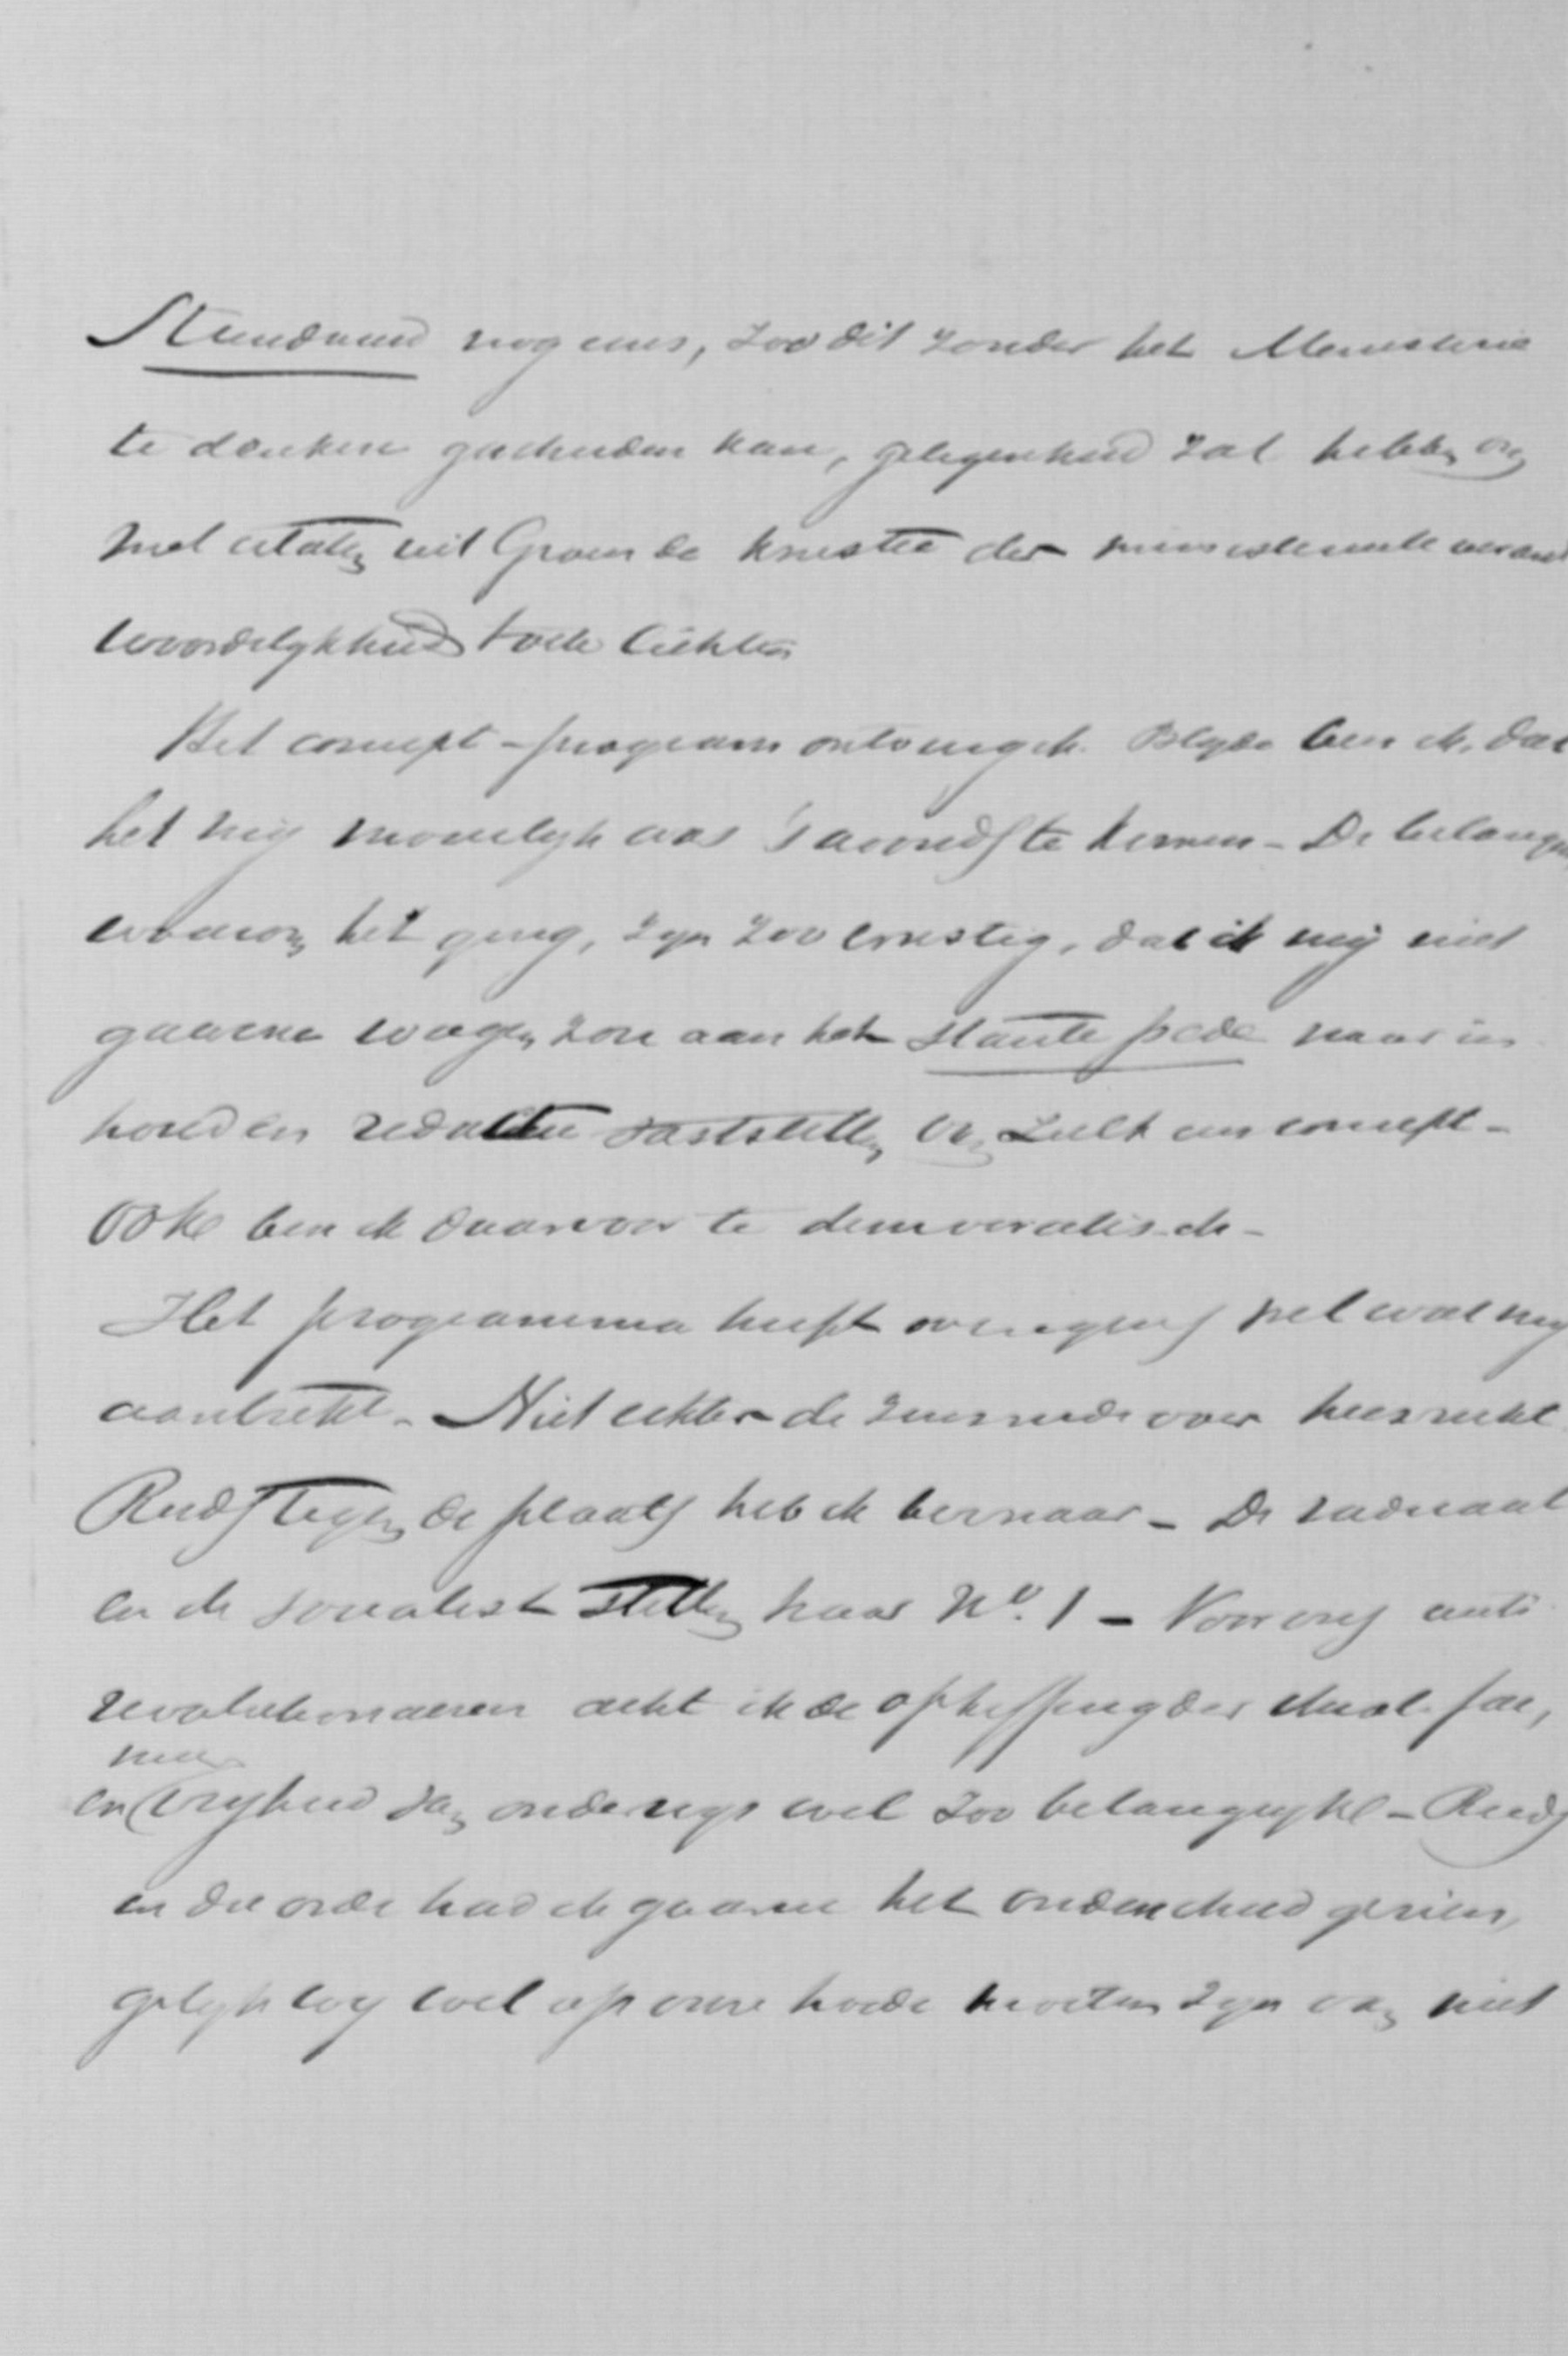 Standaard nog eens, zoo dit zonder het Ministerie
te denken geschieden kan, gelegenheid zal hebben om
met citaten uit Groen de kwestie der ministerieele verant
woordelykheid toe te lichten
Het concept-program ontving ik. Blyde ben ik, dat
het mij moeielyk was 's avonds te komen - De belangen
waarom het ging, zyn zoo ernstig, dat ik mij niet
gaarne wagen zou aan het stante pede naar in
houd en redactie vaststellen van zulk een concept -
Ook ben ik daarvoor te democratisch -
Het programma heeft overigens veel wat mij
aantrekt - Niet echter de zinsnede over kiesrecht
Reeds tegen de plaats heb ik bezwaar - De radicaal
en de socialist stellen haar No. 1 - Voor ons anti
revolutionairen acht ik de opheffing der
meer
en vryheid van onderwys wel zoo belangryk - Reeds
in die orde had ik gaarne het onderscheid gezien,
gelyk wy wel op onze hoede moeten zyn om niet